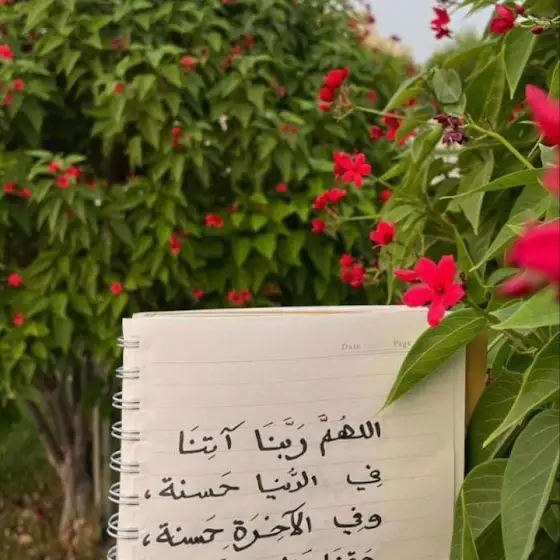 Date Page
اللهُمَّ رَبَّنَا آتِنَا
فِي الدُّنيا حَسنة،
وفِي الآخِرَةِ حَسنة،